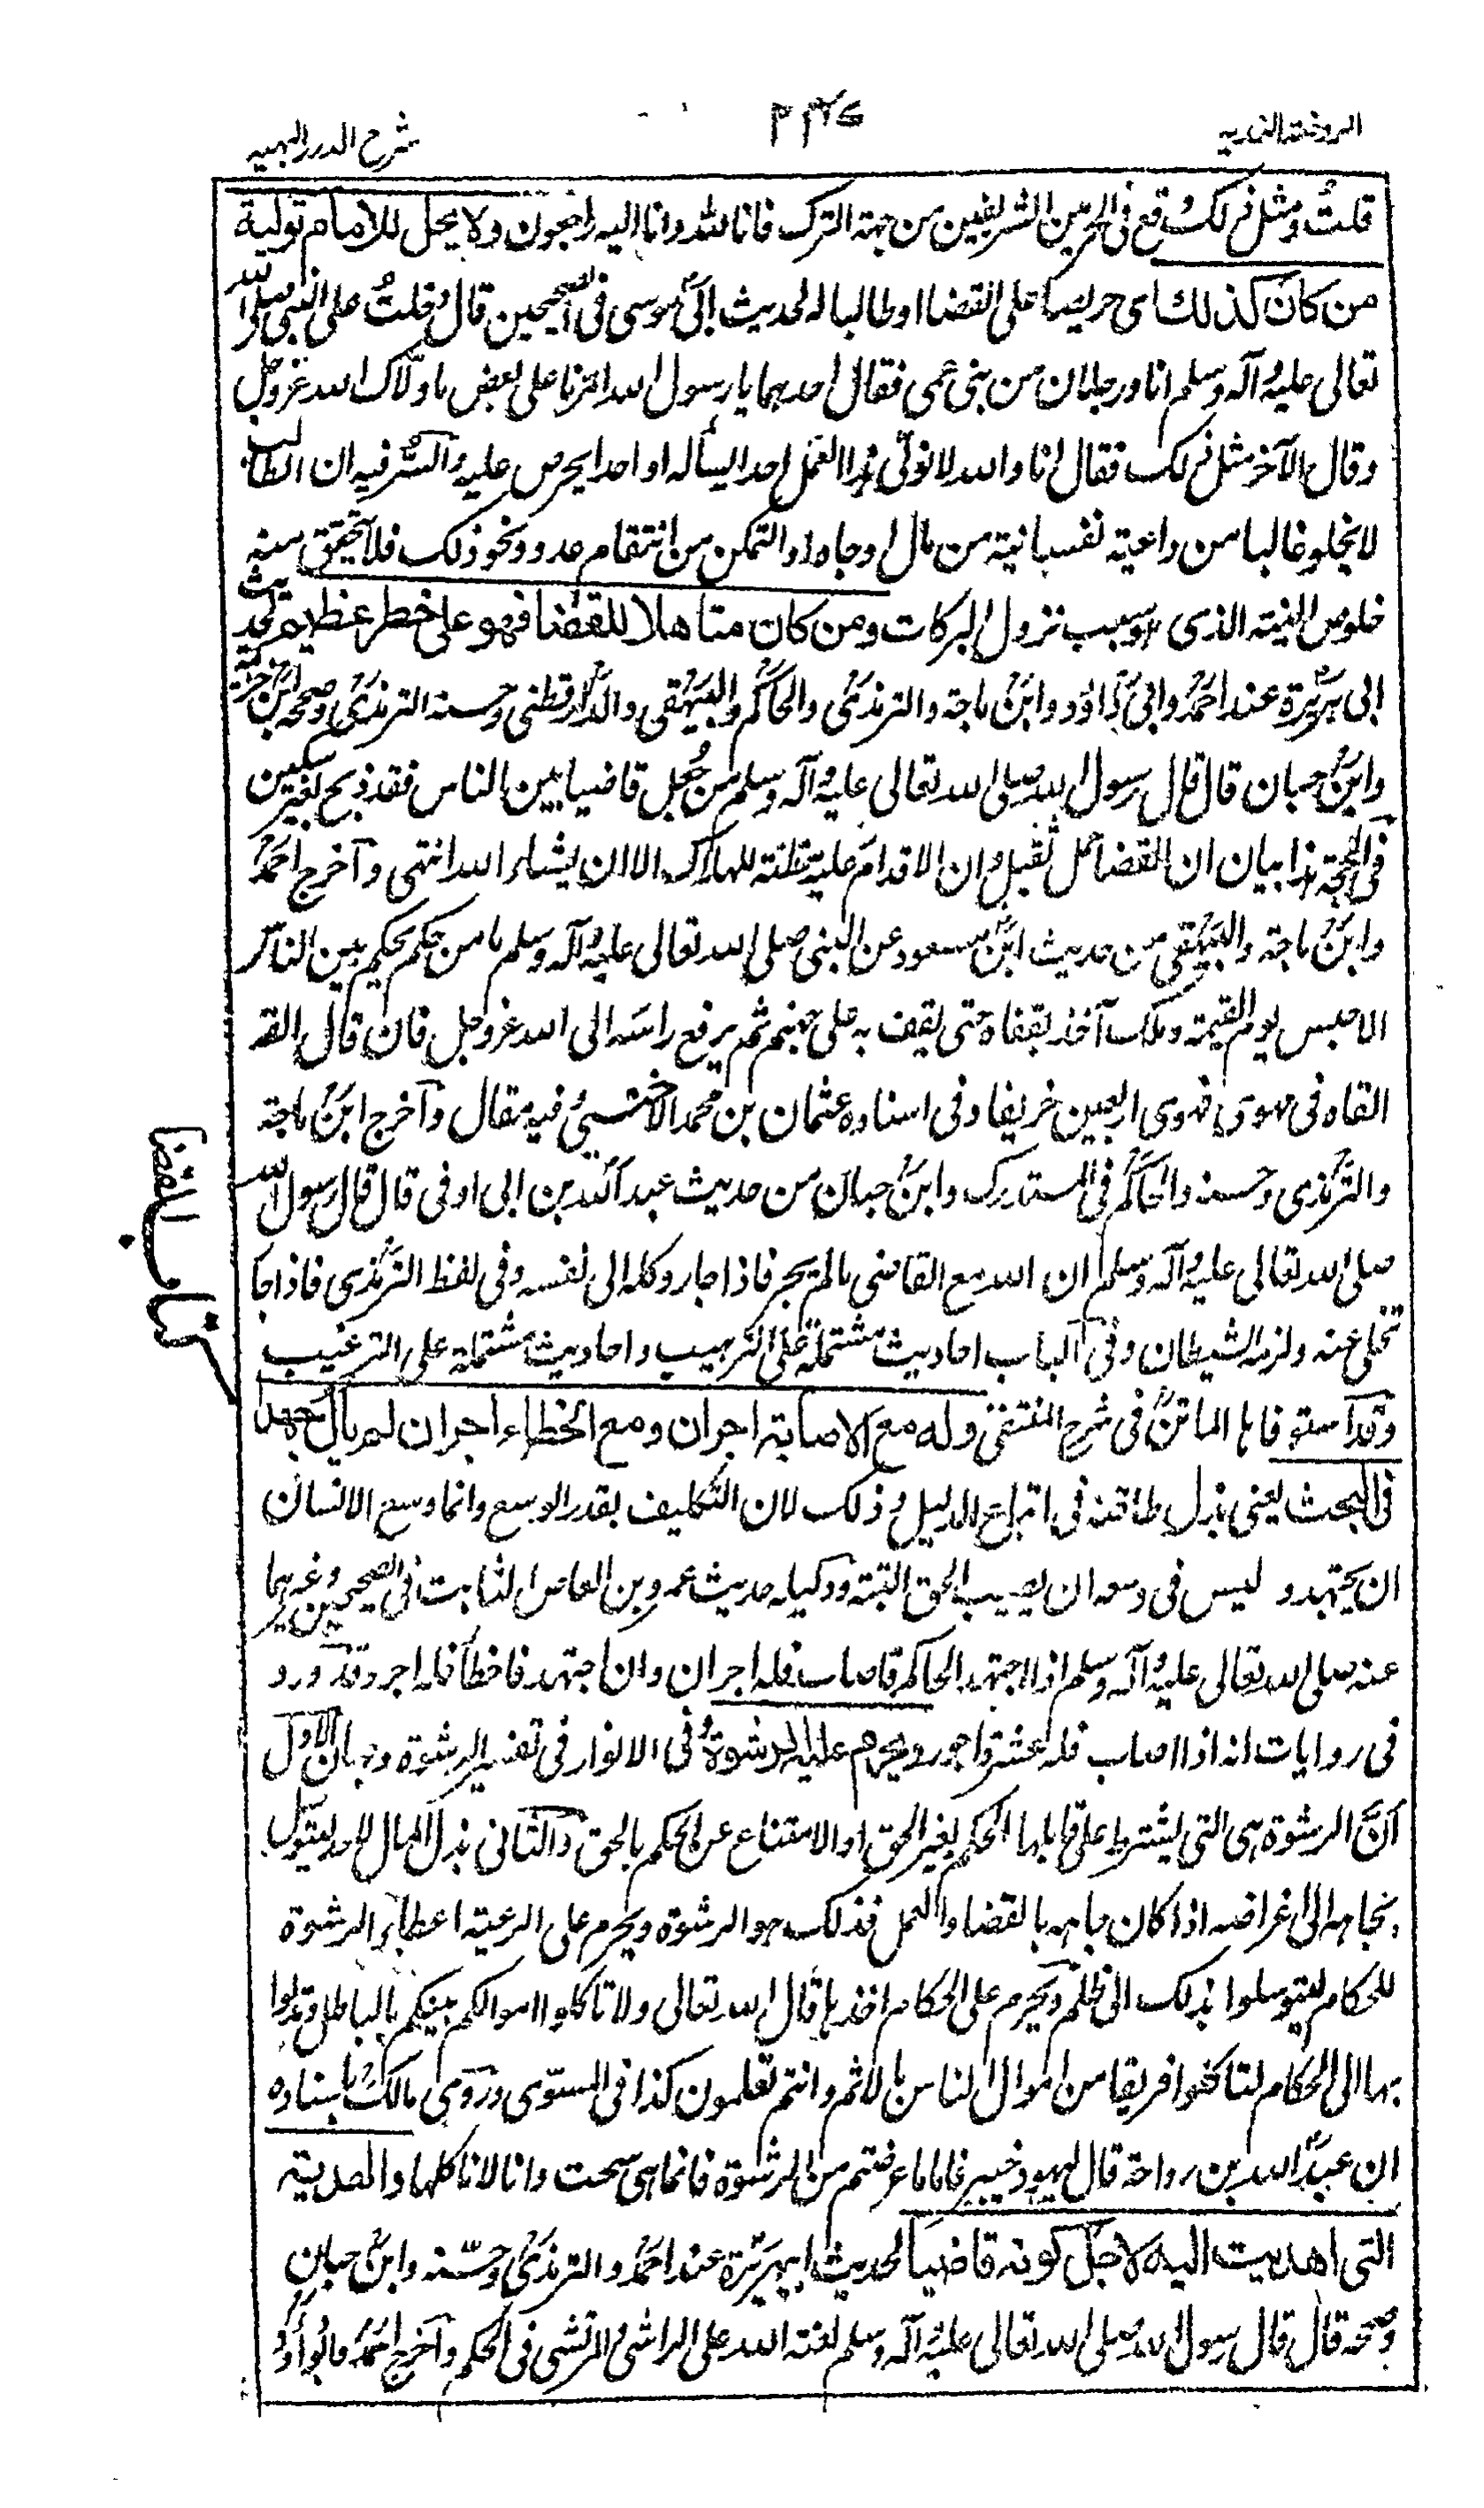 الروضة الندية
٣٣٧
شرح الدرر البهية
قلتُ ومثل ذلك وقع فى الحرمين الشريفين من جهة الترك فانا لله وانا اليه راجعون ولا يحل للامام تولية
من كان كذلك اى حريصا على القضا او طالبا له لحديث ابى موسى فى الصحيحين قال دخلتُ على النبى صلى الله
تعالى عليه وآله وسلم انا ورجلان من بنى عمى فقال احدهما يا رسول الله امّرنا على بعض ما ولّاك الله عزوجل
وقال الآخر مثل ذلك فقال انا والله لا نولّى هذا العمل احدا يسأله او احدا يحرص عليه والسّر فيه ان الطالب
لا يخلو غالبا من داعية نفسانية من مال او جاه او التمكن من انتقام عدو ونحو ذلك فلا يتحقق منه
خلوص النية الذى هو سبب نزول البركات ومن كان متأهلا للقضا فهو على خطر عظيم لحديث
ابى هريرة عند احمد وابى داؤد وابن ماجة والترمذى والحاكم والبيهقى والدارقطنى وحسنه الترمذى وصححه ابن خزيمة
وابن حبان قال قال رسول الله صلى الله تعالى عليه وآله وسلم من جُعل قاضيا بين الناس فقد ذبح بغير سكين
فى الحجة هذا بيان ان القضا حمل ثقيل وان الاقدام عليه مظنة للهلاك الا ان يشاء الله انتهى وآخرج احمد
وابن ماجة والبيهقى من حديث ابن مسعود عن النبى صلى الله تعالى عليه وآله وسلم ما من حكم يحكم بين الناس
الا حبس يوم القيمة وملك آخذ بقفاه حتى يقف به على جهنم ثم يرفع راسه الى الله عزوجل فان قال القه
القاه فى مهوى فهوى اربعين خريفا وفى اسناده عثمان بن محمد الاخنسى فيه مقال وآخرج ابن ماجة
والترمذى وحسنه والحاكم فى المستدرك وابن حبان من حديث عبد الله بن ابى اوفى قال قال رسول الله
صلى الله تعالى عليه وآله وسلم ان الله مع القاضى ما لم يجر فاذا جار وكله الى نفسه وفى لفظ الترمذى فاذا جا
تخلى عنه ولزمه الشيطان وفى الباب احاديث مشتملة على الترهيب واحاديث مشتملة على الترغيب
وقد استوفاها الماتن فى شرح المنتقى وله مع الاصابة اجران ومع الخطاء اجر ان لم يأل جهدا
فى البحث يعنى بذل طاقته فى اتباع الدليل وذلك لان التكليف بقدر الوسع وانما وسع الانسان
ان يجتهد وليس فى وسعه ان يصيب الحق البتة ودليله حديث عمرو بن العاص الثابت فى الصحيحين وغيرهما
عنه صلى الله تعالى عليه وآله وسلم اذا اجتهد الحاكم فاصاب فله اجران وان اجتهد فاخطأ فله اجر وقد ورد
فى روايات انه اذا اصاب فله عشرة اجور ويحرم عليه الرشوة فى الانوار فى تفسير الرشوة وجهان الاول
انّ الرشوة هى التى يشترط على قابلها الحكم بغير الحق او الامتناع عن الحكم بالحق والثانى بذل المال لاحد ليتوسل
بجاهه الى اغراضه اذا كان جاهه بالقضا والعمل فذلك هو الرشوة ويحرم على الرعية اعطاء الرشوة
للحكام ليتوسلوا بذلك الى ظلم ويحرم على الحكام اخذها قال الله تعالى ولا تاكلوا اموالكم بينكم بالباطل وتدلوا
بها الى الحكام لتاكلوا فريقا من اموال الناس بالاثم وانتم تعلمون كذا فى المسوّى وروى مالك باسناده
ان عبد الله بن رواحة قال ليهود خيبر فاما ما عرضتم من الرشوة فانما هى سحت وانا لا ناكلها والهدية
التى اهديت اليه لاجل كونه قاضيا لحديث ابيهريرة عند احمد والترمذى وحسّنه وابن حبان
وصححه قال قال رسول الله صلى الله تعالى عليه وآله وسلم لعنة الله على الراشى والمرتشى فى الحكم وآخرج احمد وابو داؤد
كتاب القضا